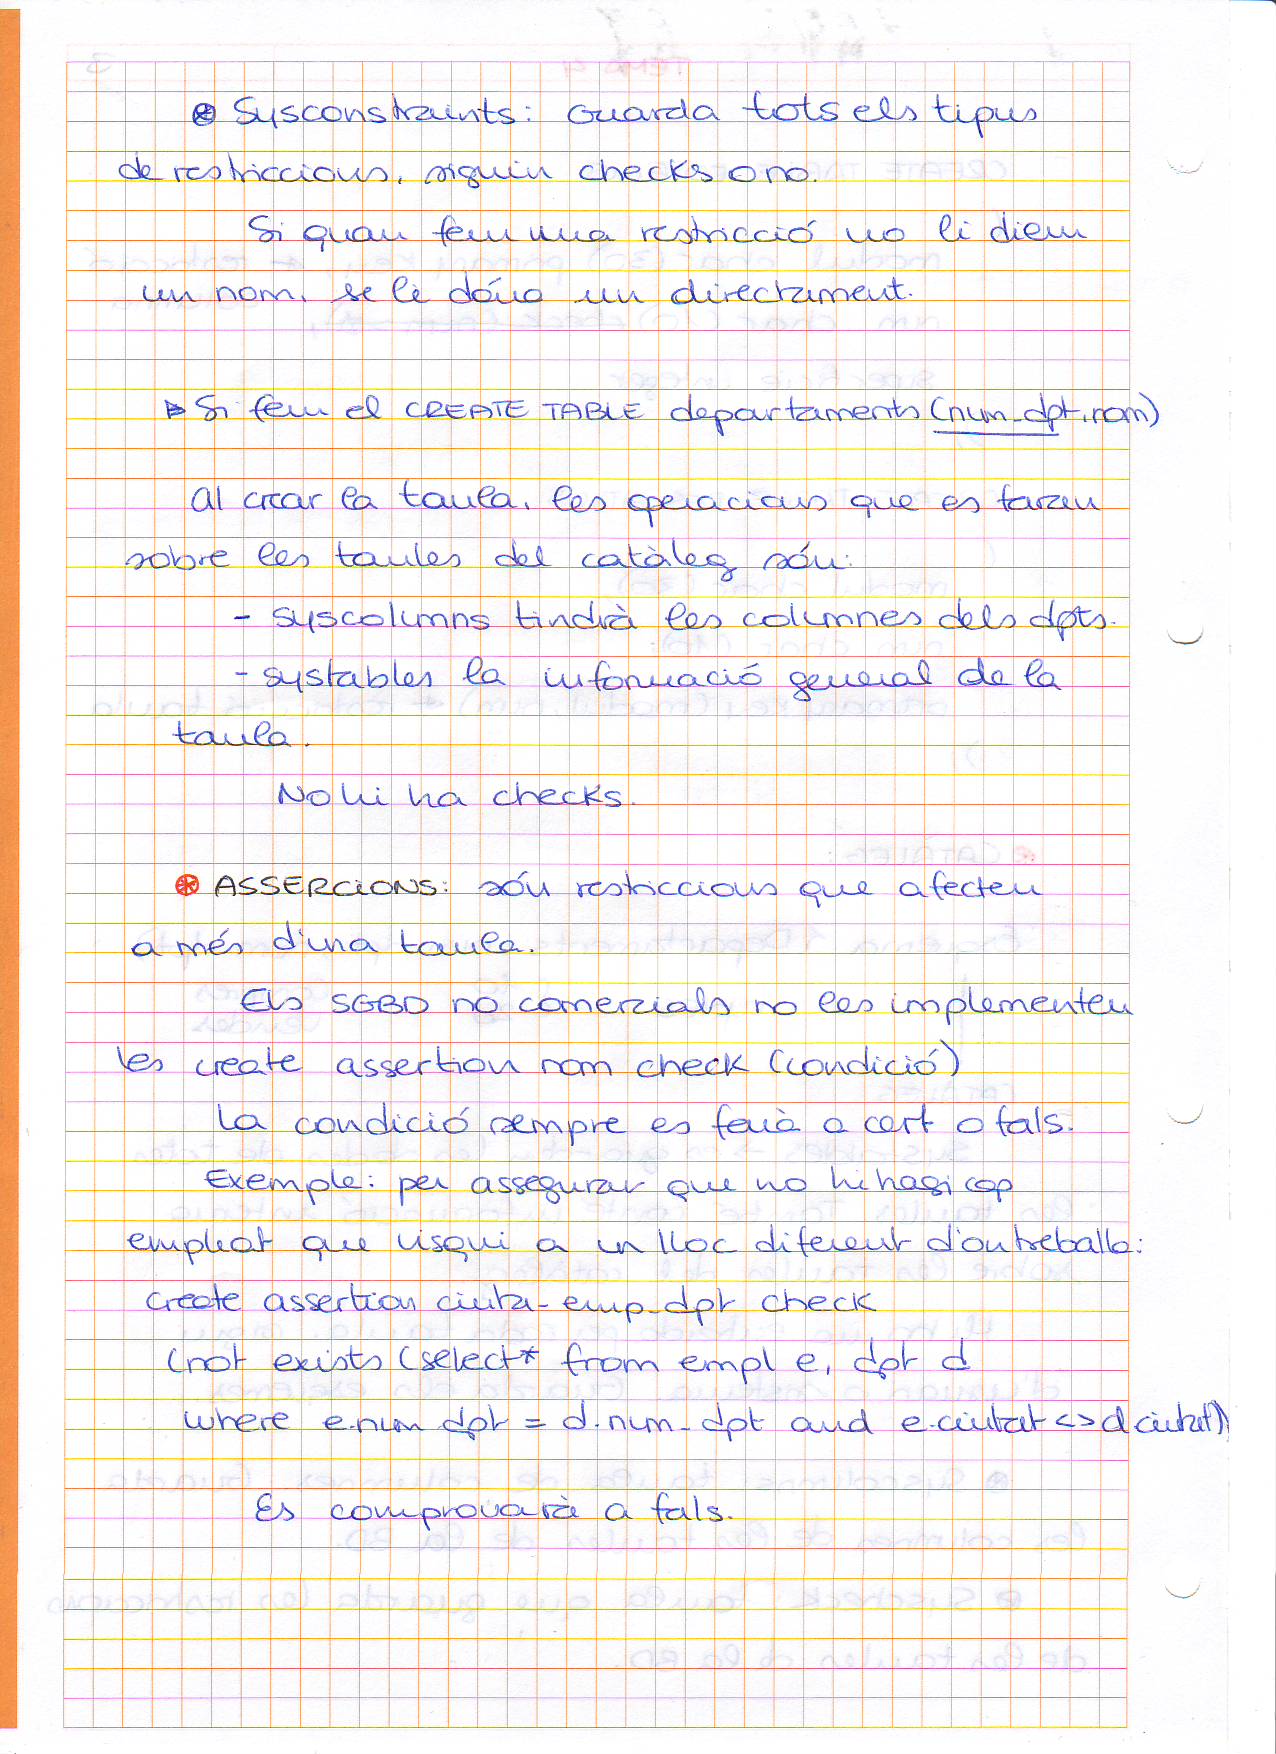 ⊛ Sysconstraints: Guarda tots els tipus
de restriccions, siguin checks o no.
Si quan fem una restricció no li diem
un nom, se li dóna un directament.
▷ Si fem el CREATE TABLE departaments (num_dpt, nom)
Al crear la taula, les operacions que es faran
sobre les taules del catàleg són:
- syscolumns tindrà les columnes dels dpts.
- systables la informació general de la
taula.
No hi ha checks.
⊛ ASSERCIONS: són restriccions que afecten
a més d'una taula.
Els SGBD no comercials no les implementen
les create assertion nom check (condició)
La condició sempre es ferà a cert o fals.
Exemple: per assegurar que no hi hagi cap
empleat que visqui a un lloc diferent d'on treballa:
create assertion ciutat-emp-dpt check
(not exists (select * from empl e, dpt d
where e.num_dpt = d.num_dpt and e.ciutat <> d.ciutat))
Es comprovarà a fals.